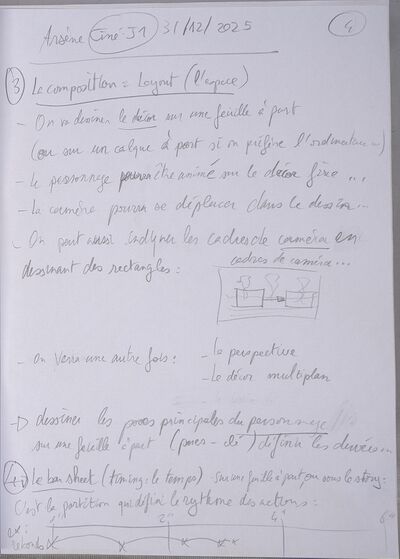 Arsène Ciné J1 31/12/2025 4
3 La composition = Layout (l'espace)
- On va dessiner le décor sur une feuille à part
(ou sur un calque à part si on préfère l'ordinateur...)
- Le personnage pourra être animé sur le décor fixe...
- La caméra pourra se déplacer dans le dessin...
- On peut aussi indiquer les cadres de caméra en
dessinant des rectangles :
cadres de caméra...
- On verra une autre fois : - la perspective
- Le décor multiplan
dessiner les poses principales du personnage
sur une feuille à part (poses-clé) définir les durées
4 Le bar sheet (timing : le temps) - sur une feuille à part ou sous le story :
C'est la partition qui défini le rythme des actions :
ex :
secondes
2" 4" 6"